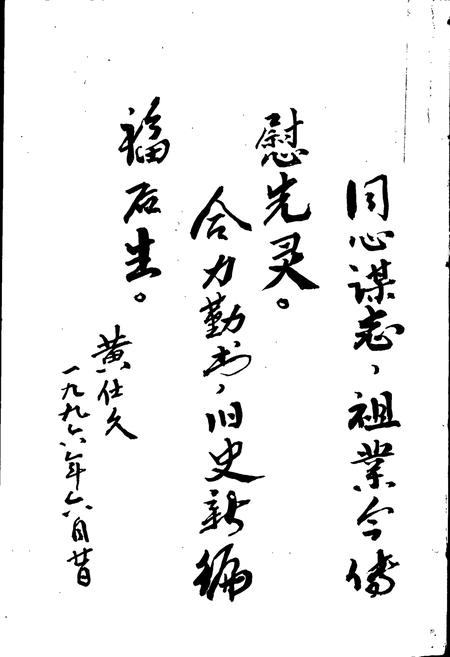 同心谋志,祖业今传
慰先灵。
合力勤书,旧史新编
福后生。
黄仕久
一九九六年六月廿日